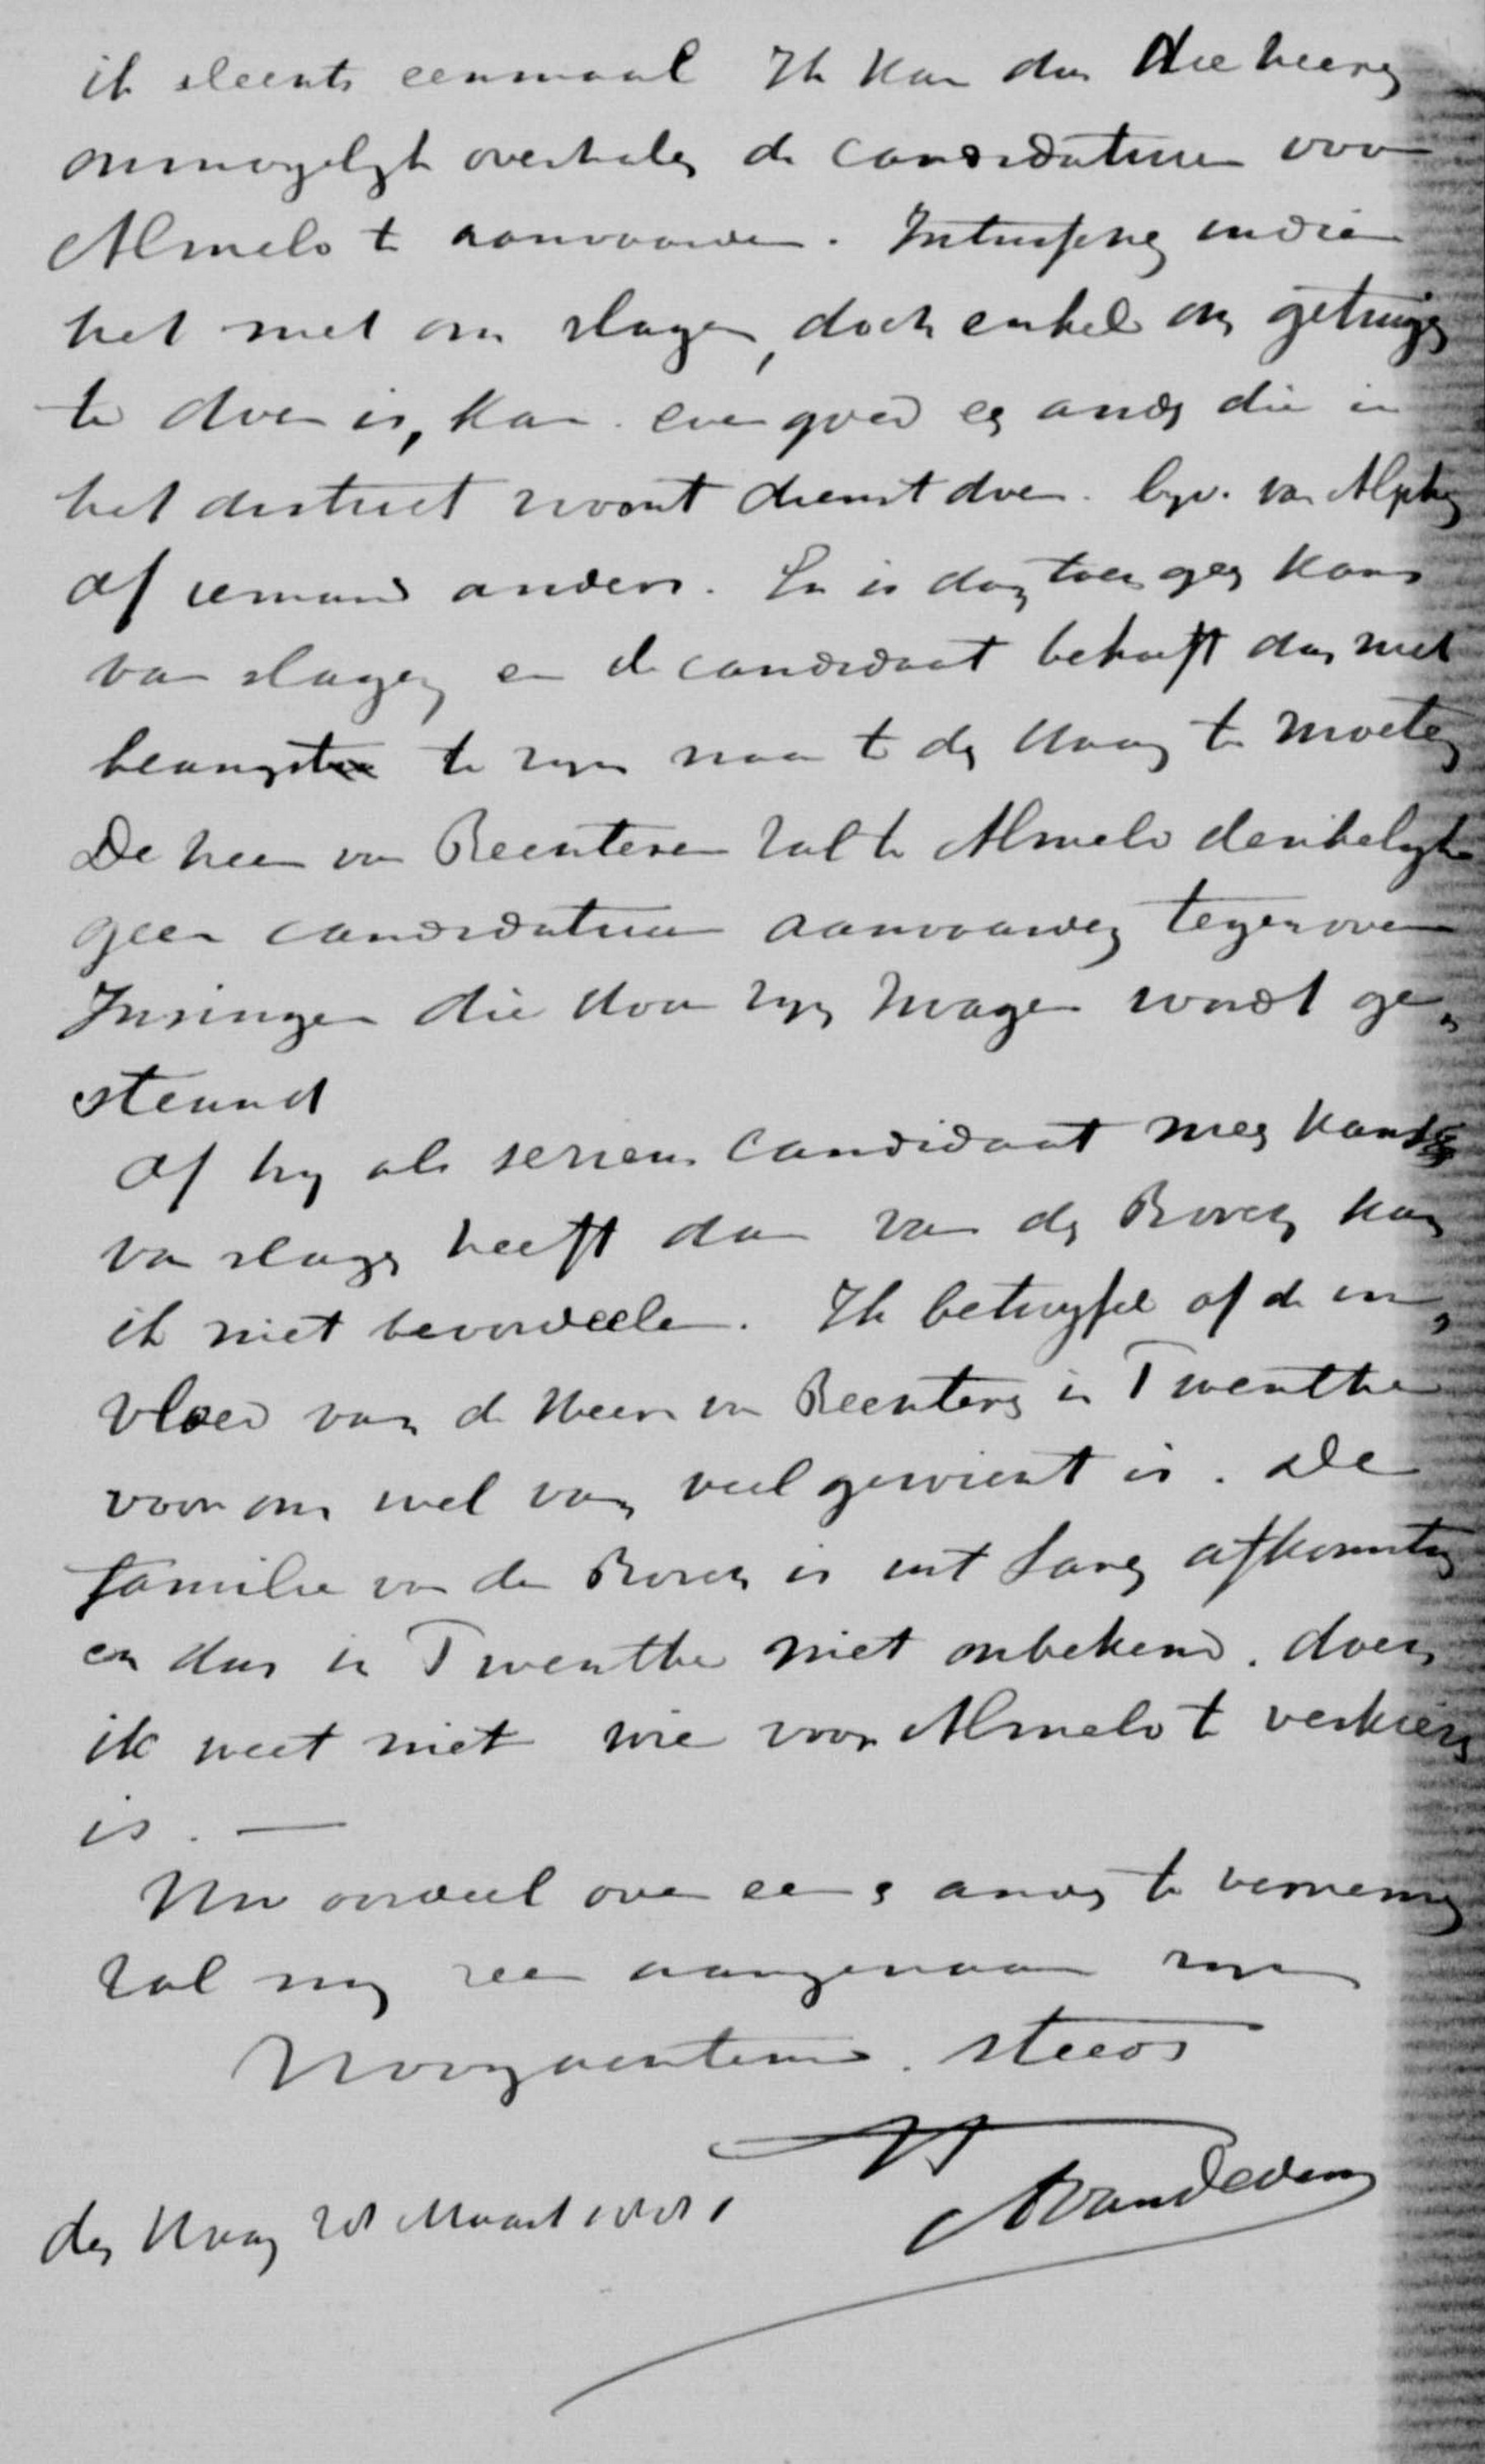 ik slechts eenmaal Ik kan dus die heeren
onmogelijk overhalen de candidatuur voor
Almelo te aanvaarden. Intusschen indien
het niet om slagen, doch enkel om getuigen
te doen is, kan even goed een ander die in
het district woont dienst doen. bijv. van Alphen
of iemand anders. Er is dan toch geen kans
van slagen en de candidaat behoeft dan niet
beangst te zijn naar den Haag te moeten
De heer van Reenteren zal te Almelo denkelijk
geen candidatuur aanvaarden tegenover
Insinger die door zijn zwager wordt ge„
steund
Of hij als serieus candidaat meer kans
van slagen heeft dan van den Borch kan
ik niet beoordeelen. Ik betwijfel of de in„
vloed van de Heer van Reenteren in Twenthe
voor ons wel van veel gewicht is. De
familie van den Borch is uit afkomstig
en dus in Twenthe niet onbekend. doch
ik weet niet wie voor Almelo te verkiezen
is. —
Uw oordeel over een en ander te vernemen
zal mij zeer aangenaam zijn
Hoogachtend. steeds
van Dedem
den Haag 28 Maart 1881